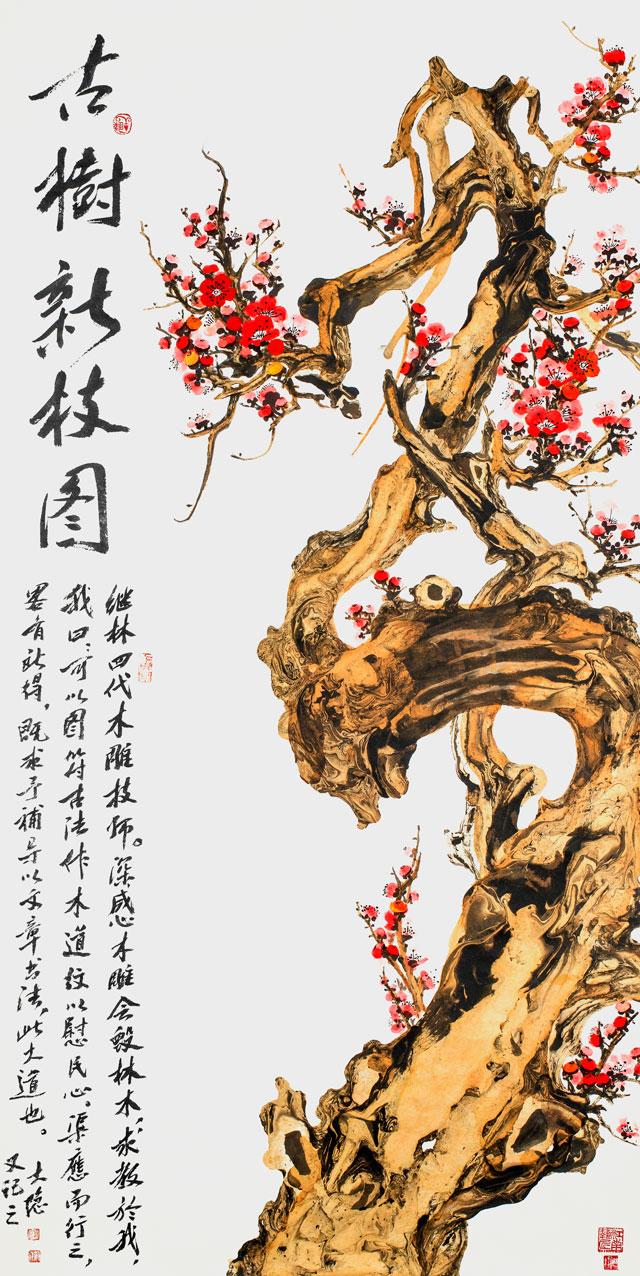 古樹新枝图
继林四代木雕技师。深感木雕会毁林木，求教於我，
我曰：可以图符古法作木道纹以慰民心。渠應而行之，
畧有所得，既求予補导以文章书法，此大道也。
大隐
又记之